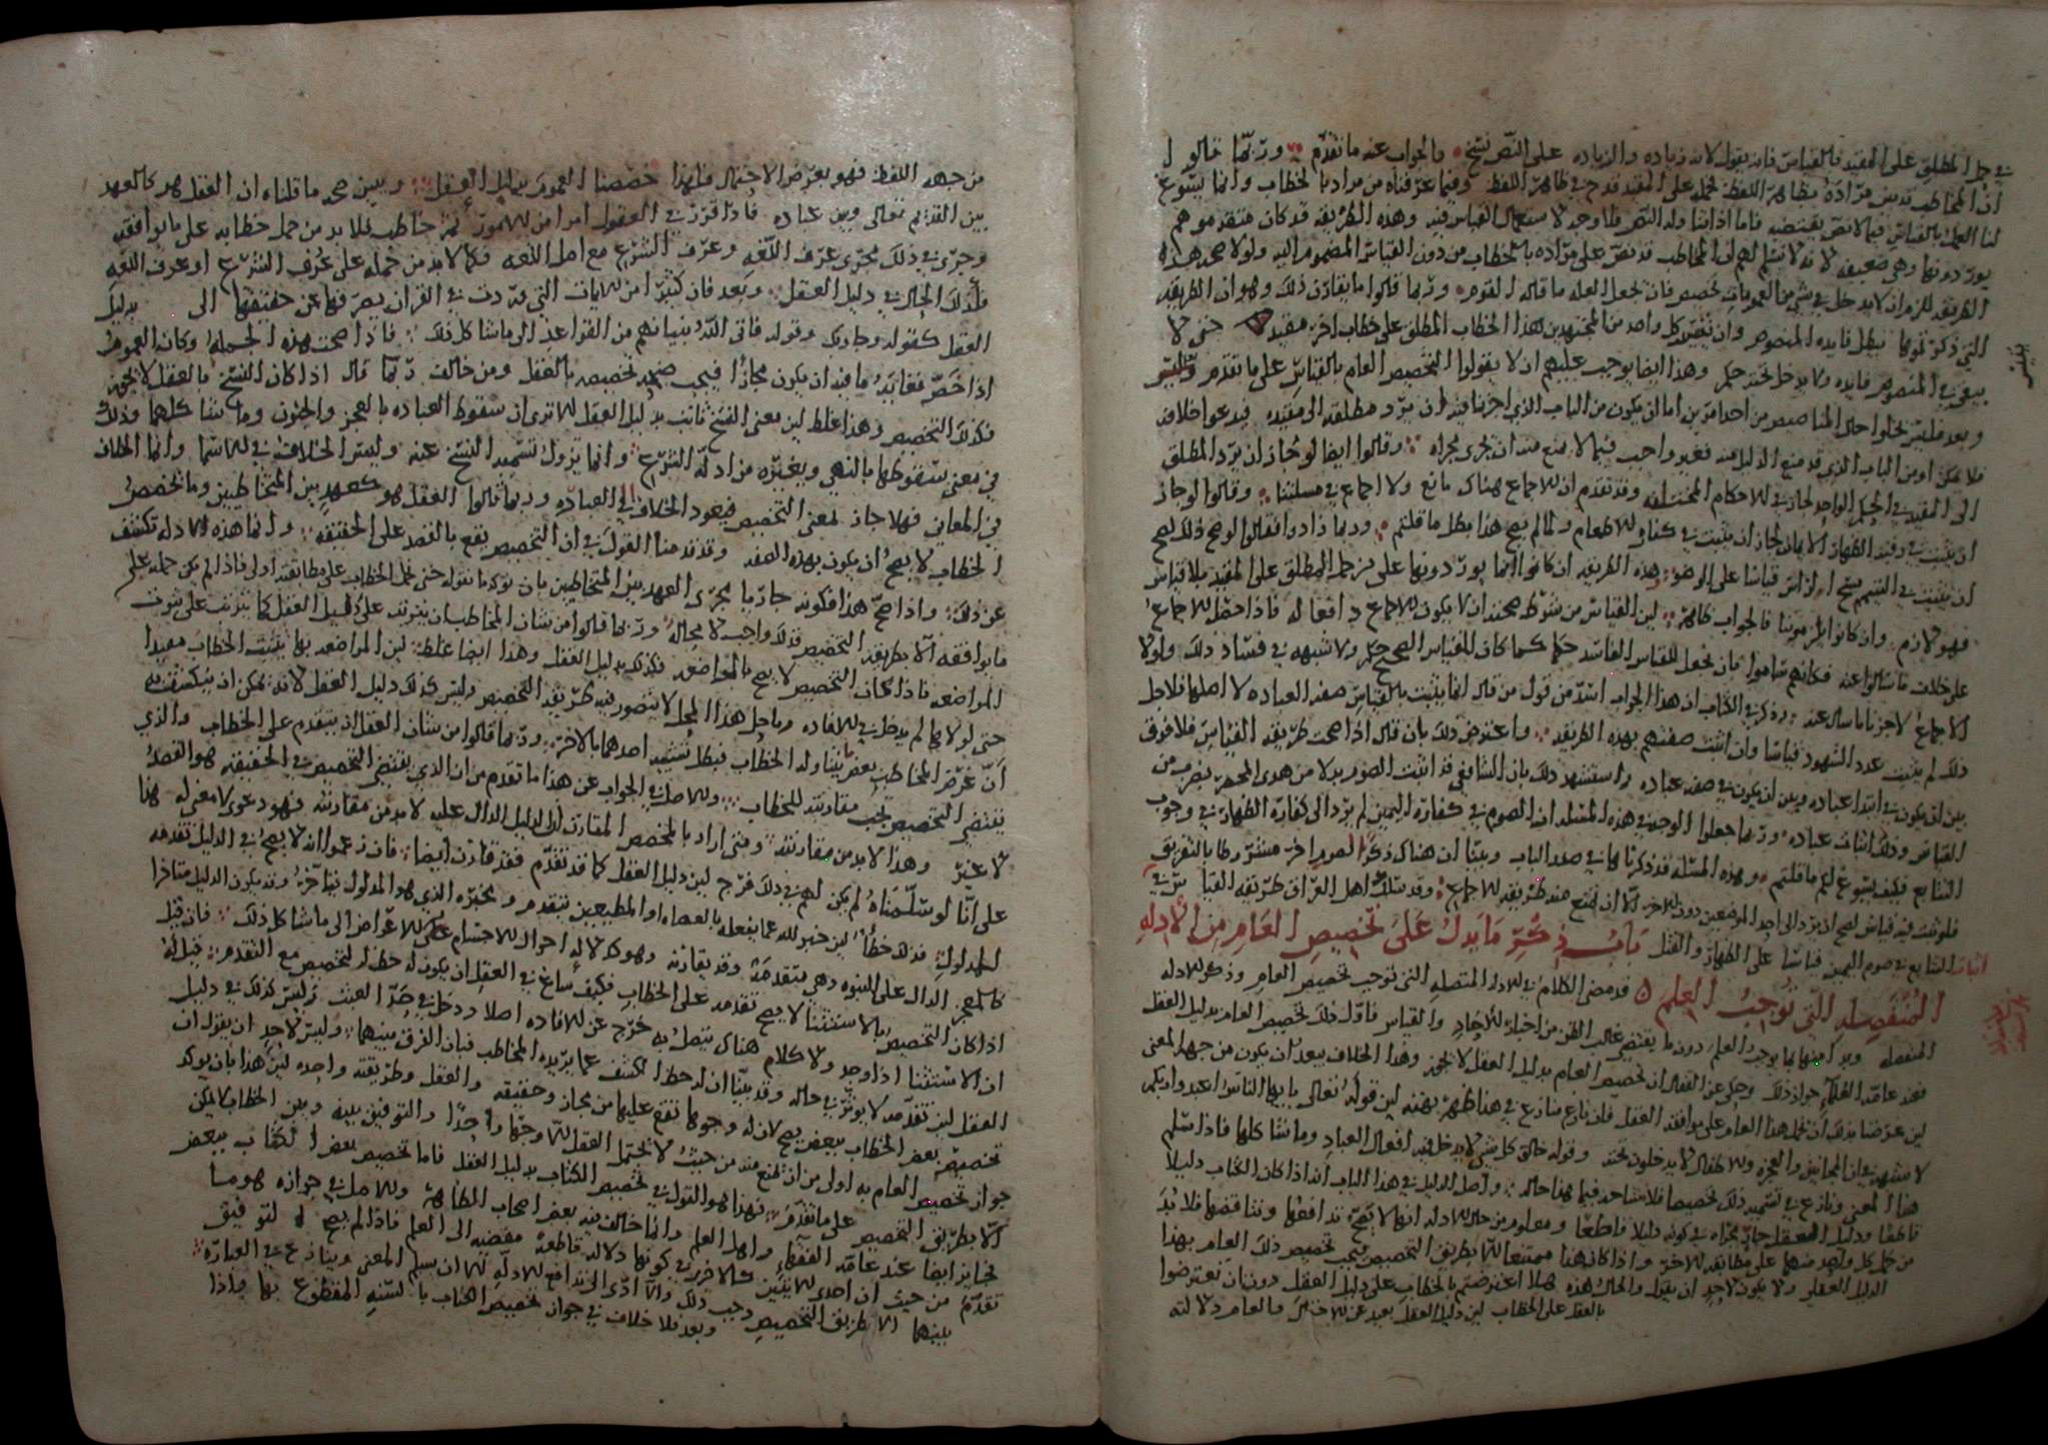 في حمل المطلق على المقيد بالقياس فانه يقول لانه زياده والزياده على النص نسخ والجواب عنه ما تقدم وربما قالوا
ان المخاطب قد بين مراده بظاهر اللفظ فحمله على المقيد قدح في ظاهر اللفظ وفيما عرفناه من مراده بالخطاب وانما يسوغ
لنا العمل بالقياس فيما لا نص يقتضيه فاما اذا تناوله النص فلا وجه لاستعمال القياس فيه وهذه الطريقه قد كان متقدموهم
يوردونها وهي ضعيفه لانه لا نسلم لهم ان المخاطب قد نص على مراده بالخطاب من دون القياس المضموم اليه ولولا صحه هذه
الطريقه للزم ان لا يدخل في شي من العمومات تخصيص بان نجعل العله ما قاله القوم وربما قالوا ما يقارب ذلك وهو ان الطريقه
التي ذكرتموها تبطل فايده المنصوص وان تقييد كل واحد من المجتهدين هذا الخطاب المطلق على خطاب اخر مقيد حتى لا
يبقى في المنصوص فايده ولا يدخل تحته حكم وهذا ايضا يوجب عليهم ان لا يقولوا بالتخصيص العام بالقياس على ما تقدم
وبعد فليس يخلوا حال من احد امرين اما ان يكون من الباب الذي اجزنا فيه ان يرد مطلقه الى مقيده فيدعوا خلافه
فلا يمكن او من الباب الذي قد منع الدليل منه فغير واجب فيما لا يمنع منه ان يجرى مجراه وقالوا ايضا لو جاز ان يرد المطلق
الى المقيد في الحكم الواحد لجاز في الاحكام المختلفه وقد تقدم ان للاجماع هناك مانع ولا اجماع في مسلتنا وقالوا لو جاز
ان يثبت في رقبه الظهار الايمان لجاز ان يثبت في كفارته الاطعام ولما لم يصح هذا بطل ما قلتم وربما زادوا فقالوا لو صح ذلك لصح
ان يثبت في التيمم مسح الراس قياسا على الوضو وهذه الطريقه ان كانوا انما يوردونها على من حمل المطلق على المقيد بلا قياس
فهو لازم وان كانوا الزمونا فالجواب ظاهر لان القياس من شرط صحته ان لا يكون للاجماع دافعا له فاذا حصل الاجماع
على خلاف ما سالوا عنه فكانهم ساموا بان نجعل للقياس الفاسد حكما كما كان للقياس الصحيح حكم ولا شبهه في فساد ذلك ولولا
الاجماع لاجزنا ما سال عنه وذكر في الكتاب ان هذا الجواب اسد من قول من قال انما يثبت بالقياس صفه العباده لا اصلها فلاجل
ذلك لم يثبت عدد الشهود قياسا وان اثبت صفتهم بهذه الطريقه واعترض ذلك بان قال اذا صحت طريقه القياس فلا فرق
بين ان يكون في ابتدا عباده وبين ان يكون في صفه عباده واستشهد ذلك بان الشافعي قد اثبت الصوم بدلا من هدى المحصر بضرب من
القياس وذلك اثبات عباده وربما جعلوا الوجه في هذه المسله ان الصوم في كفارة اليمين لم يرد الى كفارة الظهار في وجوب
التتابع فكيف يسوغ لكم ما قلتم وهذه المسله قد ذكرناها في صدر الباب وبينا ان هناك ذكرا لصوم اخر مشروطا بالتفريق
فلو ثبت فيه قياس لصح ان يرد الى احد الموضعين دون الاخر الا ان يمنع منه طريقه الاجماع وقد سلك اهل العراق طريقه القياس في
اثبات التتابع في صوم اليمين قياسا على الظهار والقتل باب في ذكر ما يدل على تخصيص العام من الادله
المنفصله التي توجب العلم قد مضى الكلام في الادله المتصله التي توجب تخصيص العام وذكر الادله
المنفصله وبدا منها بما يوجب العلم دون ما يقتضي غالب الظن من اخبار الاحاد والقياس فاول ذلك تخصيص العام بدليل العقل
فعند عامه العلماء جواز ذلك وحكي عن القفال ان تخصيص العام بدليل العقل لا يجوز وهذا الخلاف يبعد ان يكون من جهه المعنى
لين غرضنا بذلك ان نحمل هذا العام على موافقه العقل فان نازع منازع في هذا ظهر بهته لين قوله تعالى يا ايها الناس اعبدوا ربكم
لا شبهه في ان المجانين والعجزه والاطفال لا يدخلون تحته وقوله خالق كل شي لا يدخل فيه افعال العباد وما شاكلها فاذا سلم
هذا المعنى ونازع في تسميه ذلك تخصيصا فلا مشاحه فيما هذا حاله واصل الدليل في هذا الباب انه اذا كان الكتاب دليلا
قاطعا ودليل العقل جار مجراه في كونه دليلا قاطعا ومعلوم من حال الادله انها لا يصح تدافعها وتناقضها فلا بد
من حمل كل واحد منهما على مطابقه الاخر واذا كان هذا ممتنعا الا بطريق التخصيص فيجب تخصيص ذلك العام بهذا
الدليل العقلي ولا يكون لاحد ان يقول والحال هذه هلا اعترضتم بالخطاب على دليل العقل دون ان تعترضوا
بالعقل على الخطاب لين دليل العقل بعيد عن الاحتمال والعام دلالته
من جهه اللفظ فهو بعرض الاحتمال فلهذا خصصنا العموم بدليل العقل ويبين صحه ما قلناه ان العقل هو كالعهد
بين القديم تعالى وبين عباده فاذا قرر في العقول امرا من الامور ثم خاطب فلا بد من حمل خطابه على ما يوافقه
وجرى في ذلك مجرى عرف اللغه وعرف الشرع مع اهل اللغه فكما لا بد من حمله على عرف الشرع او عرف اللغه
فكذلك الحال في دليل العقل وبعد فان كثيرا من الايات التي وردت في القران يصرفها عن حقيقتها الى بدليل
العقل كقوله وجا ربك وقوله فاتى الله بنيانهم من القواعد الى ما شاكل ذلك فاذا صحت هذه الجمله وكان العموم
اذا خص فغايه ما فيه ان يكون مجازا فيجب صحه تخصيصه بالعقل ومن خالف ربما قال اذا كان النسخ بالعقل لا يجوز
فكذلك التخصيص وهذا غلط لين معنى النسخ ثابت بدليل العقل الا ترى ان سقوط العباده بالعجز والجنون وما شاكلهما وذلك
في معنى سقوطها بالنهي وبغيره من ادله الشرع وانما يزول تسميه النسخ عنه وليس الخلاف في الاسما وانما الخلاف
في المعاني فهلا جاز لمعنى التخصيص فيعود الخلاف الى العباره وربما قالوا العقل هو كعهد بين المتخاطبين وما تخصص
الخطاب لا يصح ان يكون بهذه الصفه وقد قدمنا القول في ان التخصيص يقع بالقصد على الحقيقه وانما هذه الادله تكشف
عن ذلك واذا صح هذا فكونه جاريا مجرى العهد بين المتخاطبين بان يوكد ما نقوله حتى نحمل الخطاب على مطابقته اولى فاذا لم يكن حمله على
ما يوافقه الا بطريقه التخصيص فذلك واجب لا محاله وربما قالوا من شان المخاطب ان يترتب على دليل العقل كما يترتب على ثبوت
المواضعه فاذا كان التخصيص لا يصح بالمواضعه فكذلك بدليل العقل وهذا ايضا غلط لين المواضعه بها يثبت الخطاب مفيدا
حتى لولاها لم يدخل في الافاده وما حل هذا المحل لا يتصور فيه طريقه التخصيص وليس كذلك دليل العقل لانه يمكن ان ينكشف به
ان غرض المخاطب بعض ما يتناوله الخطاب فبطل تشبيه احدهما بالاخر وربما قالوا من شان العقل ان يتقدم على الخطاب والذي
يقتضي التخصيص يجب مقارنته للخطاب والاصل في الجواب عن هذا ما تقدم من ان الذي يقتضي التخصيص في الحقيقه هو القصد
لا غير وهذا لا بد من مقارنته ومتى اراد بالمخصص المقارن ان الدليل الدال عليه لا بد من مقارنته فهو دعوى لا معنى له هذا
على انا لو سلمناه لم يكن لهم في ذلك فرج لين دليل العقل كما قد تقدم فقد قارن ايضا فان زعموا انه لا يصح في الدليل تقدمه
للمدلول فذلك خطا لين خبر الله عما يفعله بالعصاه او المطيعين يتقدم ومخبره الذي هو المدلول يتاخر وقد يكون الدليل متاخرا
كالمعجز الدال على النبوه وهي متقدمه وقد يقارنه وهو كدلاله احوال الاجسام على الاعراض الى ما شاكل ذلك فان قيل
اذا كان التخصيص بالاستثنا لا يصح تقدمه على الخطاب فكيف ساغ في العقل ان يكون له حظ التخصيص مع التقدم قيل له
ان الاستثنا اذا وجد ولا كلام هناك يتصل به خرج عن الافاده اصلا ودخل في حد العبث وليس كذلك في دليل
العقل لين تقدمه لا يوثر في حاله وقد بينا ان له حظ الكشف عما يريده المخاطب فبان الفرق بينهما وليس لاحد ان يقول ان
تخصيص بعض الخطاب ببعض يصح لان له وجوها تقع عليها من مجاز وحقيقه والعقل وطريقته واحده لين هذا بان يوكد
جواز تخصيص العام به اولى من ان يمنع منه من حيث لا يحتمل العقل الا وجها واحدا والتوفيق بينه وبين الخطاب لا يمكن
الا بطريق التخصيص على ما تقدم فهذا هو القول في تخصيص الكتاب بدليل العقل فاما تخصيص بعض الكتاب ببعض
فجايز ايضا عند عامه الفقهاء واهل العلم وانما خالف فيه بعض اصحاب الظاهر والاصل في جوازه هو ما
تقدم من حيث ان احدى الايتين كالاخرى في كونها دلاله قاطعه مفضيه الى العلم فاذا لم يصح التوفيق
بينهما الا بطريق التخصيص وجب ذلك والا ادى الى تدافع الادله الا ان يسلم المعنى وينازع في العباره
وبعد فلا خلاف في جواز تخصيص الكتاب بالسنه المقطوع بها فاذا